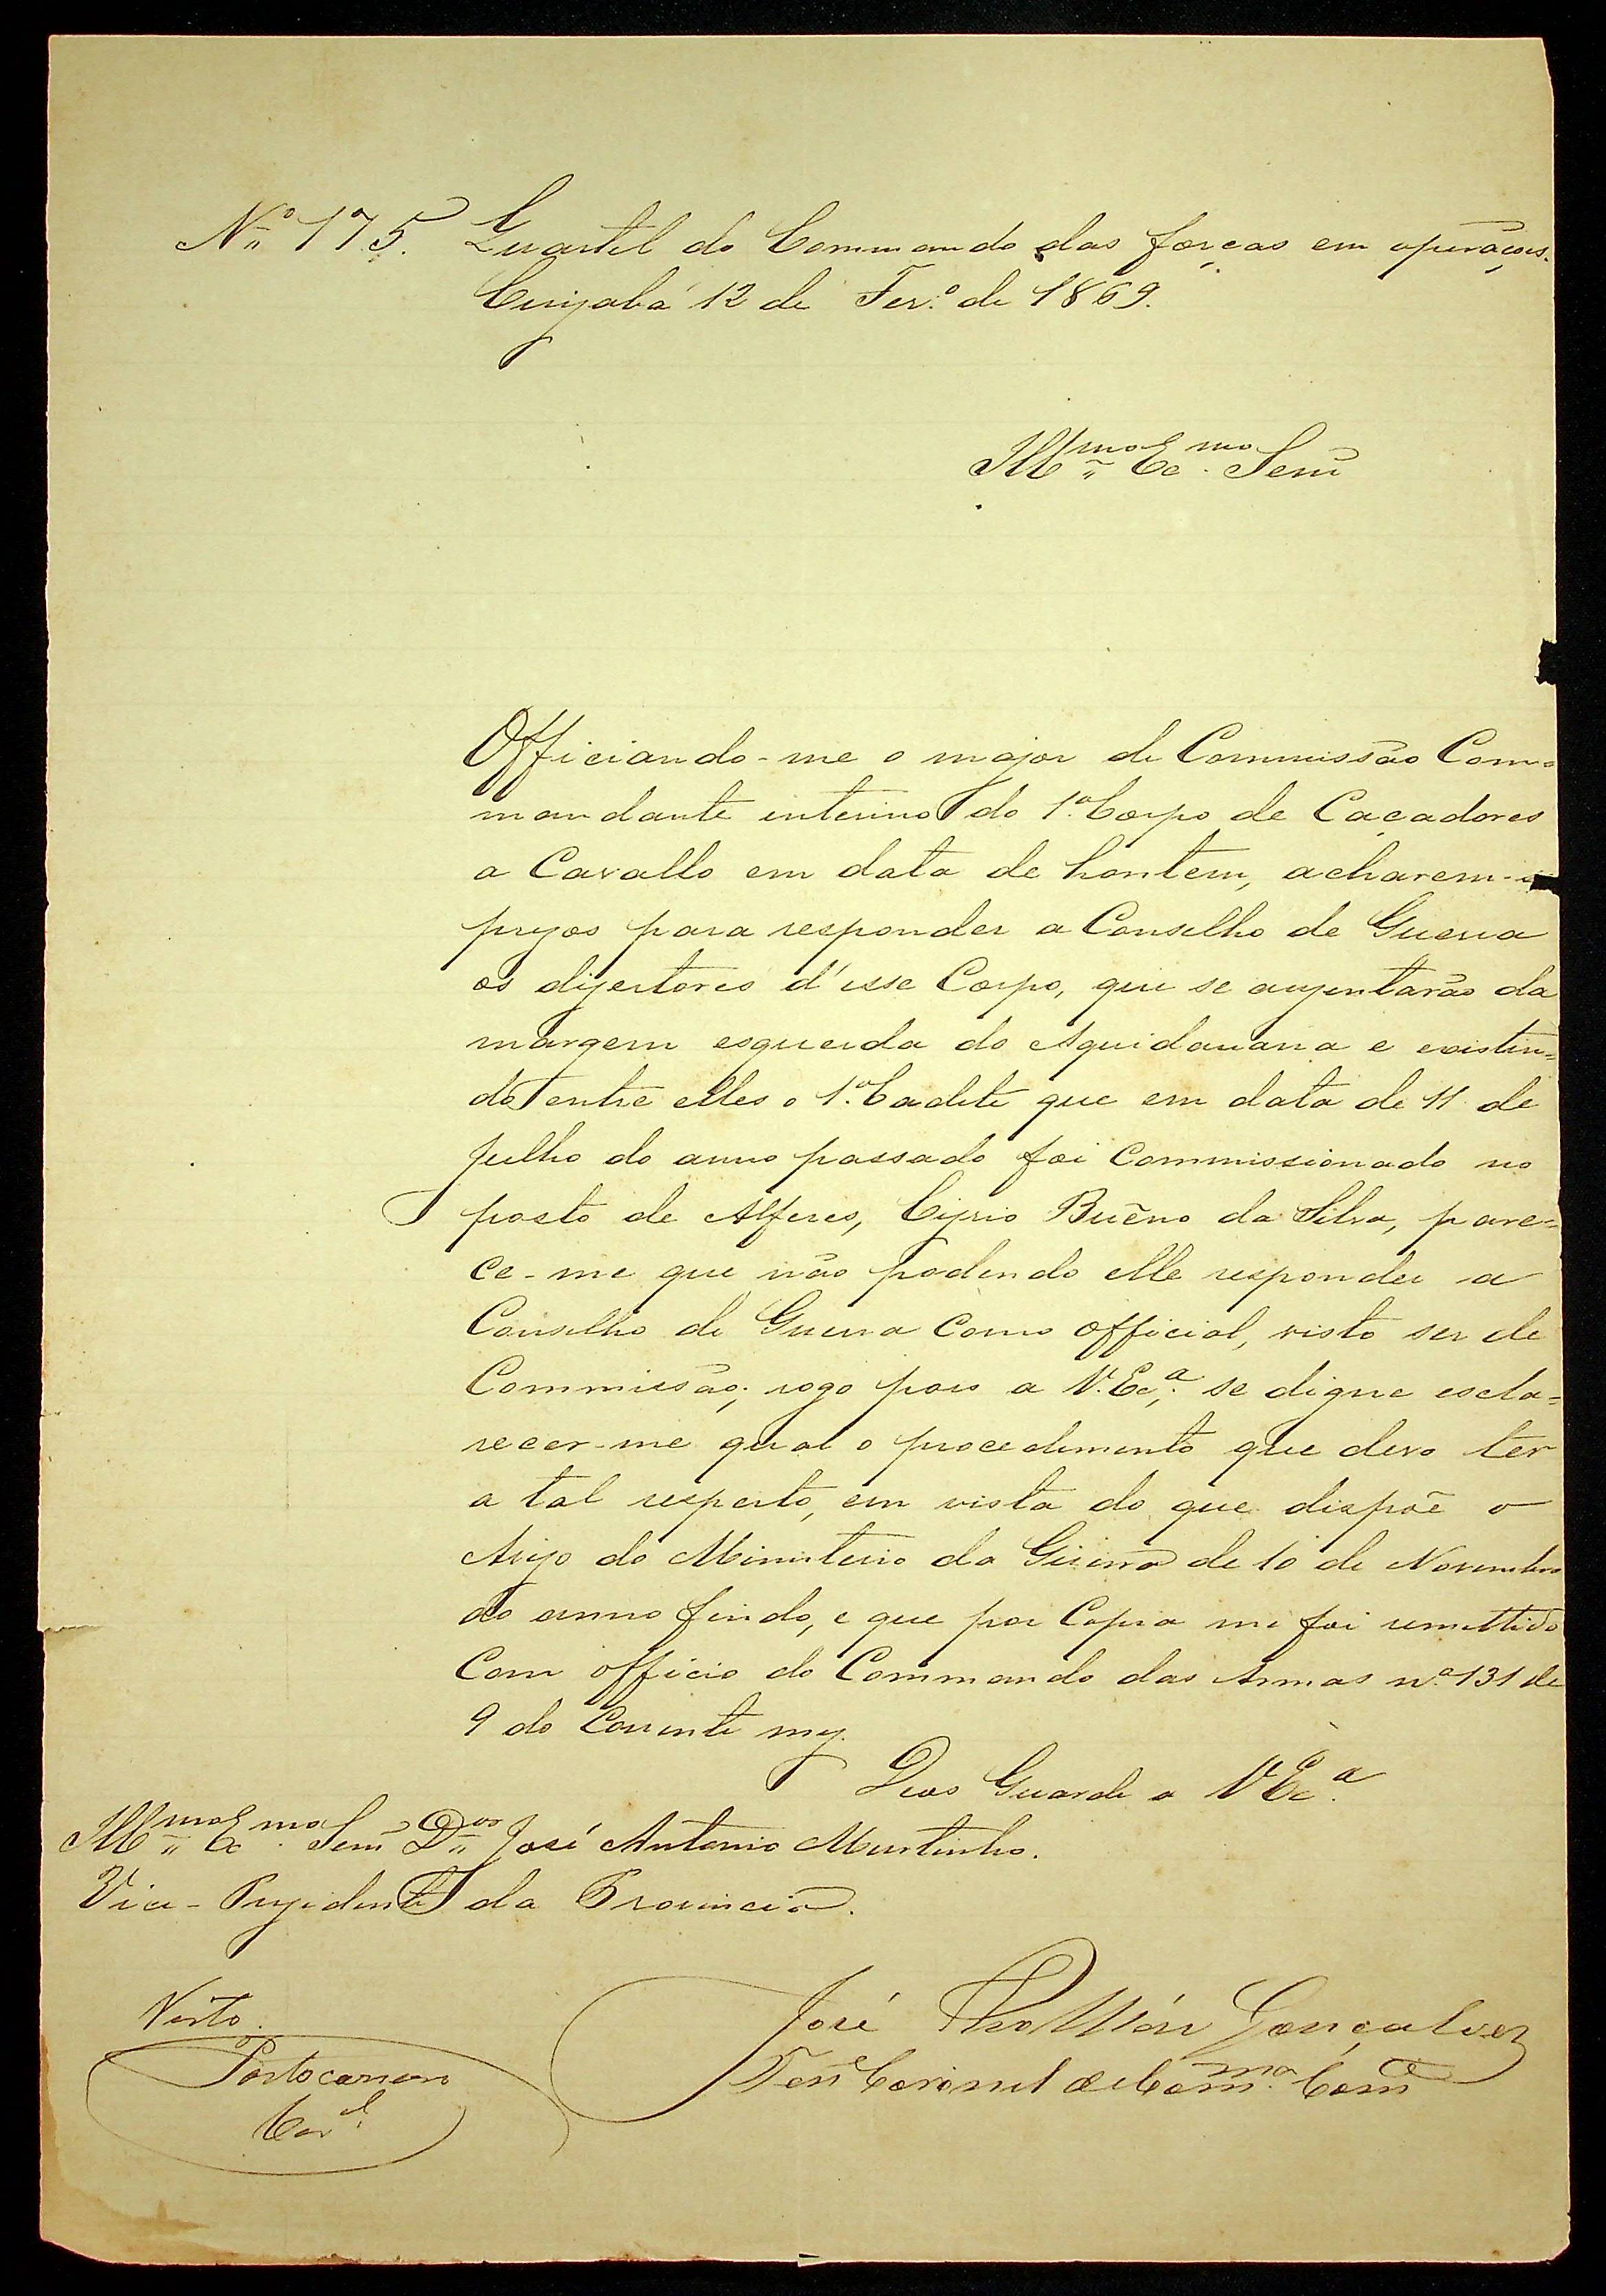 Nº 175. Quartel do Commando das forças em operações.
Cuyabá 12 de Fevº de 1869.
Illmo Exmo Senr
Officiando-me o major de Commissão Com=
mandante interino do 1º Corpo de Caçadores
a Cavallo em data de hontem, acharem-se
prezos para responder a Conselho de Guerra
os dizertores d'esse Corpo, que se auzentarão da
margem esquerda do Aquidauana e existin=
do entre elles o 1º Cadete que em data de 11 de
Julho do anno passado foi Commissionado no
posto de Alferes, Bueno da Silva, pare=
ce-me que não podendo elle responder a
Conselho de Guerra como official, visto ser de
Commissão; rogo pois a V. Exª, se digne escla=
recer-me qual o procedimento que devo ter
a tal respeito, em vista do que dispõe o
Avizo do Ministerio da Guerra de 10 de Novembro
do anno findo, e que por Copia me foi remettido
Com officio do Commando das Armas nº 131 de
9 do Corrente mez.
Deos Guarde a V Exª
Illmo Exmo Senr Dor José Antonio Murtinho.
Vice-Prezidente da Provincia.
Visto.
Portocarrero
Corel
José Gonçalvez
Ten Coronel de Commam Come